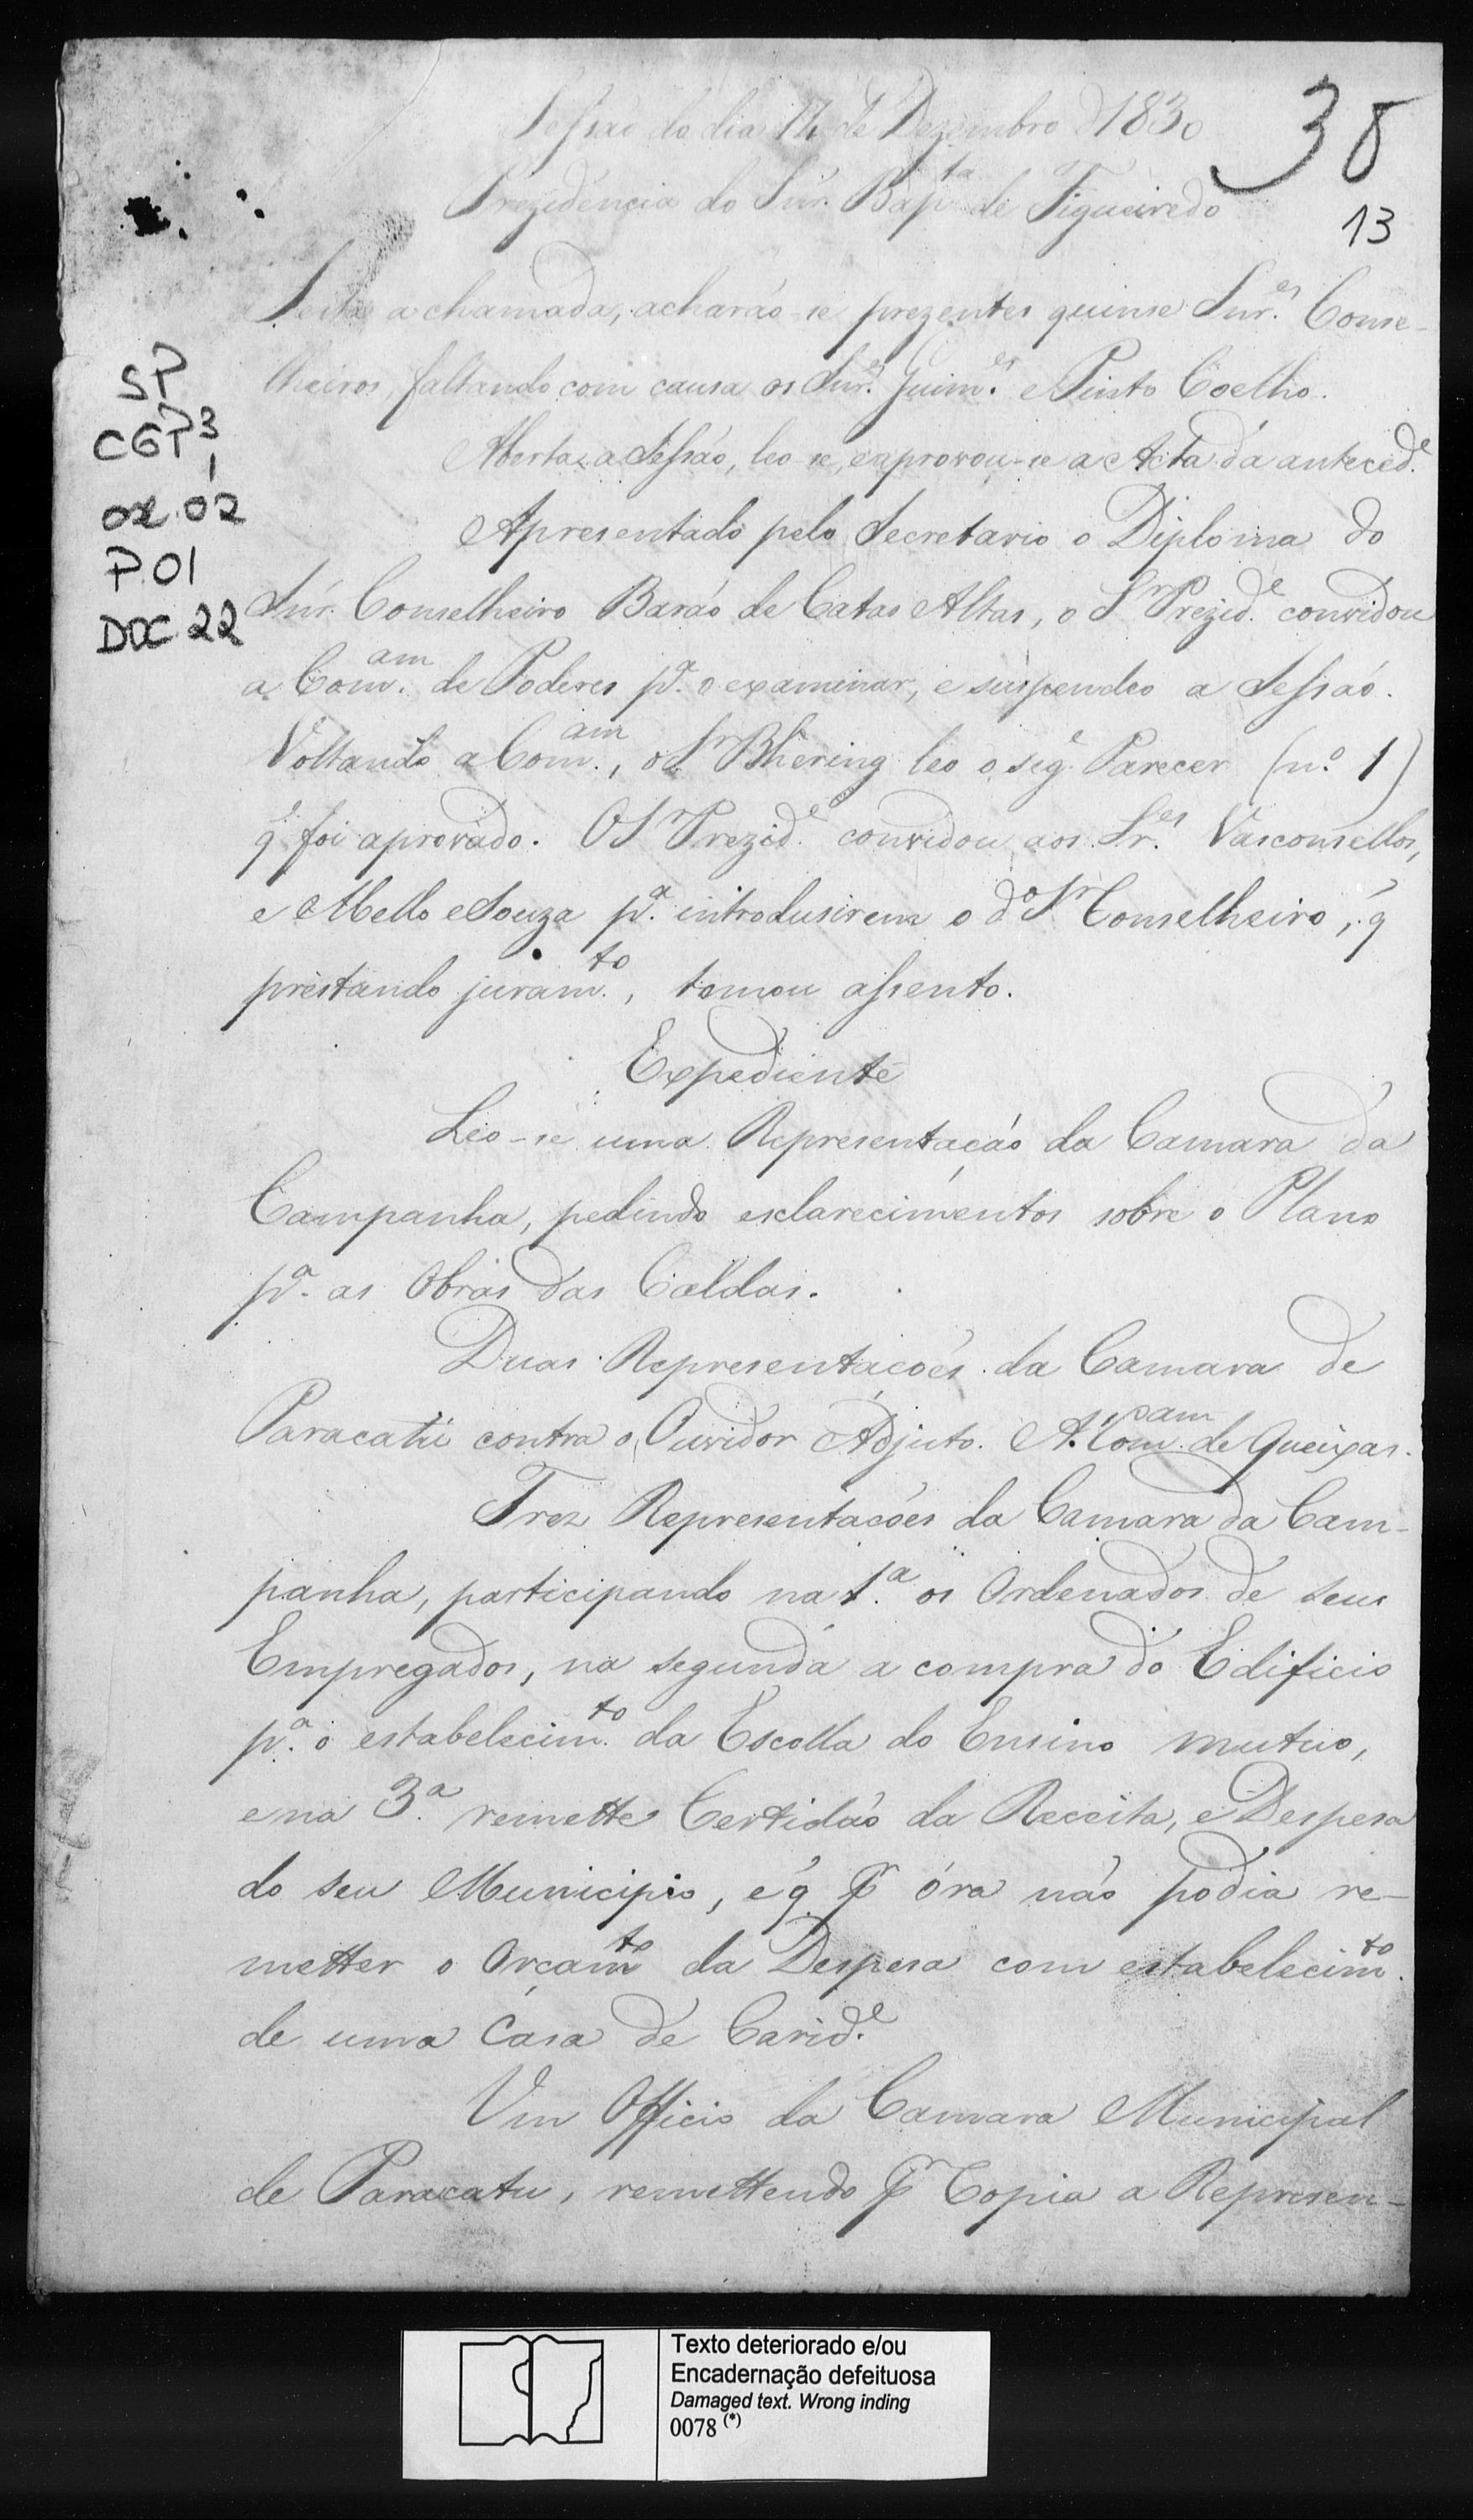 Sessão do dia de Dezembro d 1830
38
Prezidencia do Snr. Bapta de Figueiredo
13
Feita a chamada, acharão-se prezentes quinse Snr.es Conse-
lheiros, faltando com causa os Snr.es Guim.es e Pinto Coelho.
Aberta a Sessão, leo-se, e aprovou-se a Acta da anteced.e
Apresentado pelo Secretario o Diploma do
Snr. Conselheiro Barão de Catas Altas, o Sr Prezid.e convidou
a Com.am de Poderes p.a o examinar, e suspendeo a Sessão.
Voltando a Com.am, o Sr Bhering leo o seg.e Parecer (n.o 1)
q' foi aprovado. O Sr Prezid.e convidou aos Sr.es Vasconsellos,
e Mello e Souza p.a introdusirem o do Sr Conselheiro, q'
prestando juram.to, tomou assento.
Expediente
Leo-se uma Representação da Camara da
Campanha, pedindo esclarecimentos sobre o Plano
p.a as Obras das Caldas.
Duas Representações da Camara de
Paracatú contra o Ouvidor Adjuto. A' Com.am de Queixas.
Trez Representações da Camara da Cam-
panha, participando na 1.a os Ordenados de seus
Empregados, na segunda a compra do Edificio
p.a o estabelecim.to da Escolla do Ensino mutuo,
e na 3.a remette Certidão da Receita, e Despesa
do seu Municipio, e q' pr óra não podia re-
metter o Orçamto da Despesa com estabelecim.to
de uma Casa de Carid.e
Um Officio da Camara Municipal
de Paracatu, remettendo pr Copia a Represen-
SP
CGP3
1
cx. 02
P.01
DOC. 22
Texto deteriorado e/ou
Encadernação defeituosa
Damaged text. Wrong inding
0078 (*)